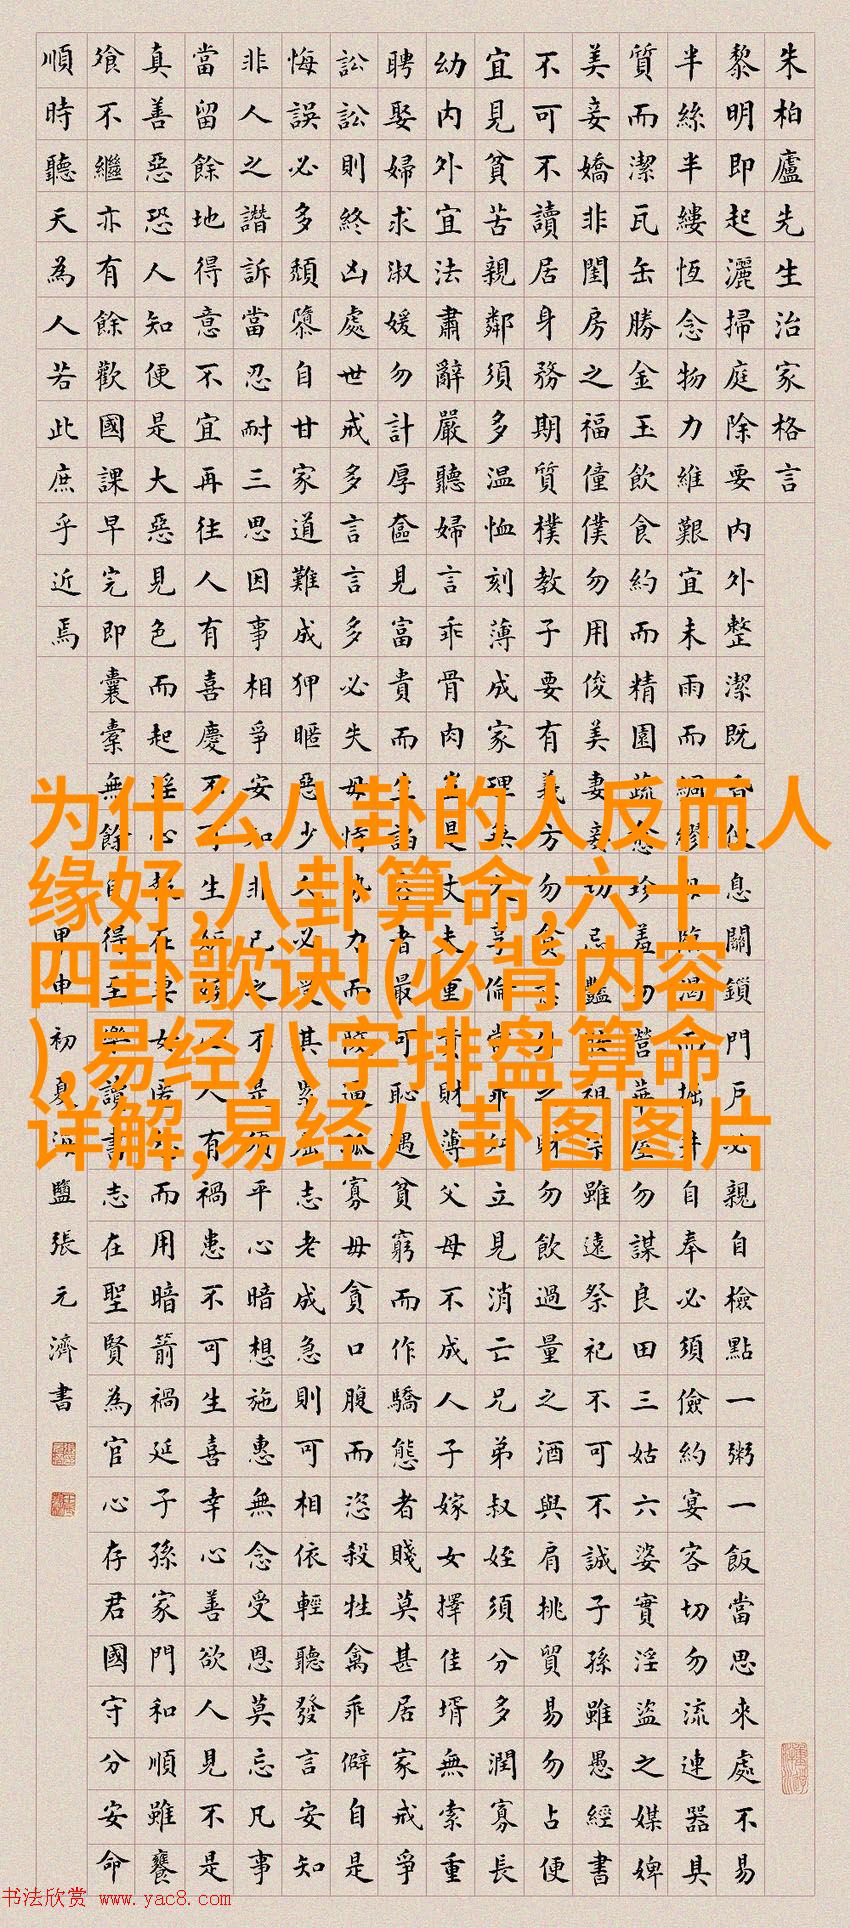 朱柏廬先生治家格言
黎明即起灑掃庭除要內外整潔既昏便息關鎖門戶必親自檢點一粥一飯當思來處不易
半絲半縷恆念物力維艱宜未雨而綢繆毋臨渴而掘井自奉必須儉約宴客切勿流連器具
質而潔瓦缶勝金玉飲食約而精園蔬愈珍羞勿營華屋勿謀良田三姑六婆實淫盜之媒婢
美妾嬌非閨房之福僮僕勿用俊美妻妾切忌豔妝祖宗雖遠祭祀不可不誠子孫雖愚經書
不可不讀居身務期質樸教子要有義方勿貪意外之財勿飲過量之酒與肩挑貿易勿占便
宜見貧苦親鄰須多温恤刻薄成家理無久享倫常乖舛立見消亡兄弟叔姪須分多潤寡長
幼內外宜法肅辭嚴聽婦言乖骨肉豈是丈夫重貲財薄父母不成人子嫁女擇佳壻無索重
聘娶婦求淑媛勿計厚奩見富貴而生諂容者最可恥遇貧窮而作驕態者賤莫甚居家戒爭
訟訟則終凶處世戒多言言多必失毋恃勢力而陵逼孤寡毋貪口腹而恣殺牲禽乖僻自是
悔誤必多頹隳自甘家道難成狎暱惡少久必受其累屈志老成急則可相依輕聽發言安知
非人之譖訴當忍耐三思因事相爭安知非己之不是須平心暗想施惠無念受恩莫忘凡事
當留餘地得意不宜再往人有喜慶不可生妒嫉心人有禍患不可生喜幸心善欲人見不是
真善惡恐人知便是大惡見色而起淫心報在妻女匿怨而用暗箭禍延子孫家門和順雖饔
飱不繼亦有餘歡國課早完即囊橐無餘自得至樂讀書志在聖賢為官心存君國守分安命
順時聽天為人若此庶乎近焉
甲申初夏海鹽張元濟書
为什么八卦的人反而人
缘好,八卦算命,六十
四卦歌诀!(必背内容
),易经八字排盘算命
详解,易经八卦图图片
书法欣赏 www.yac8.com